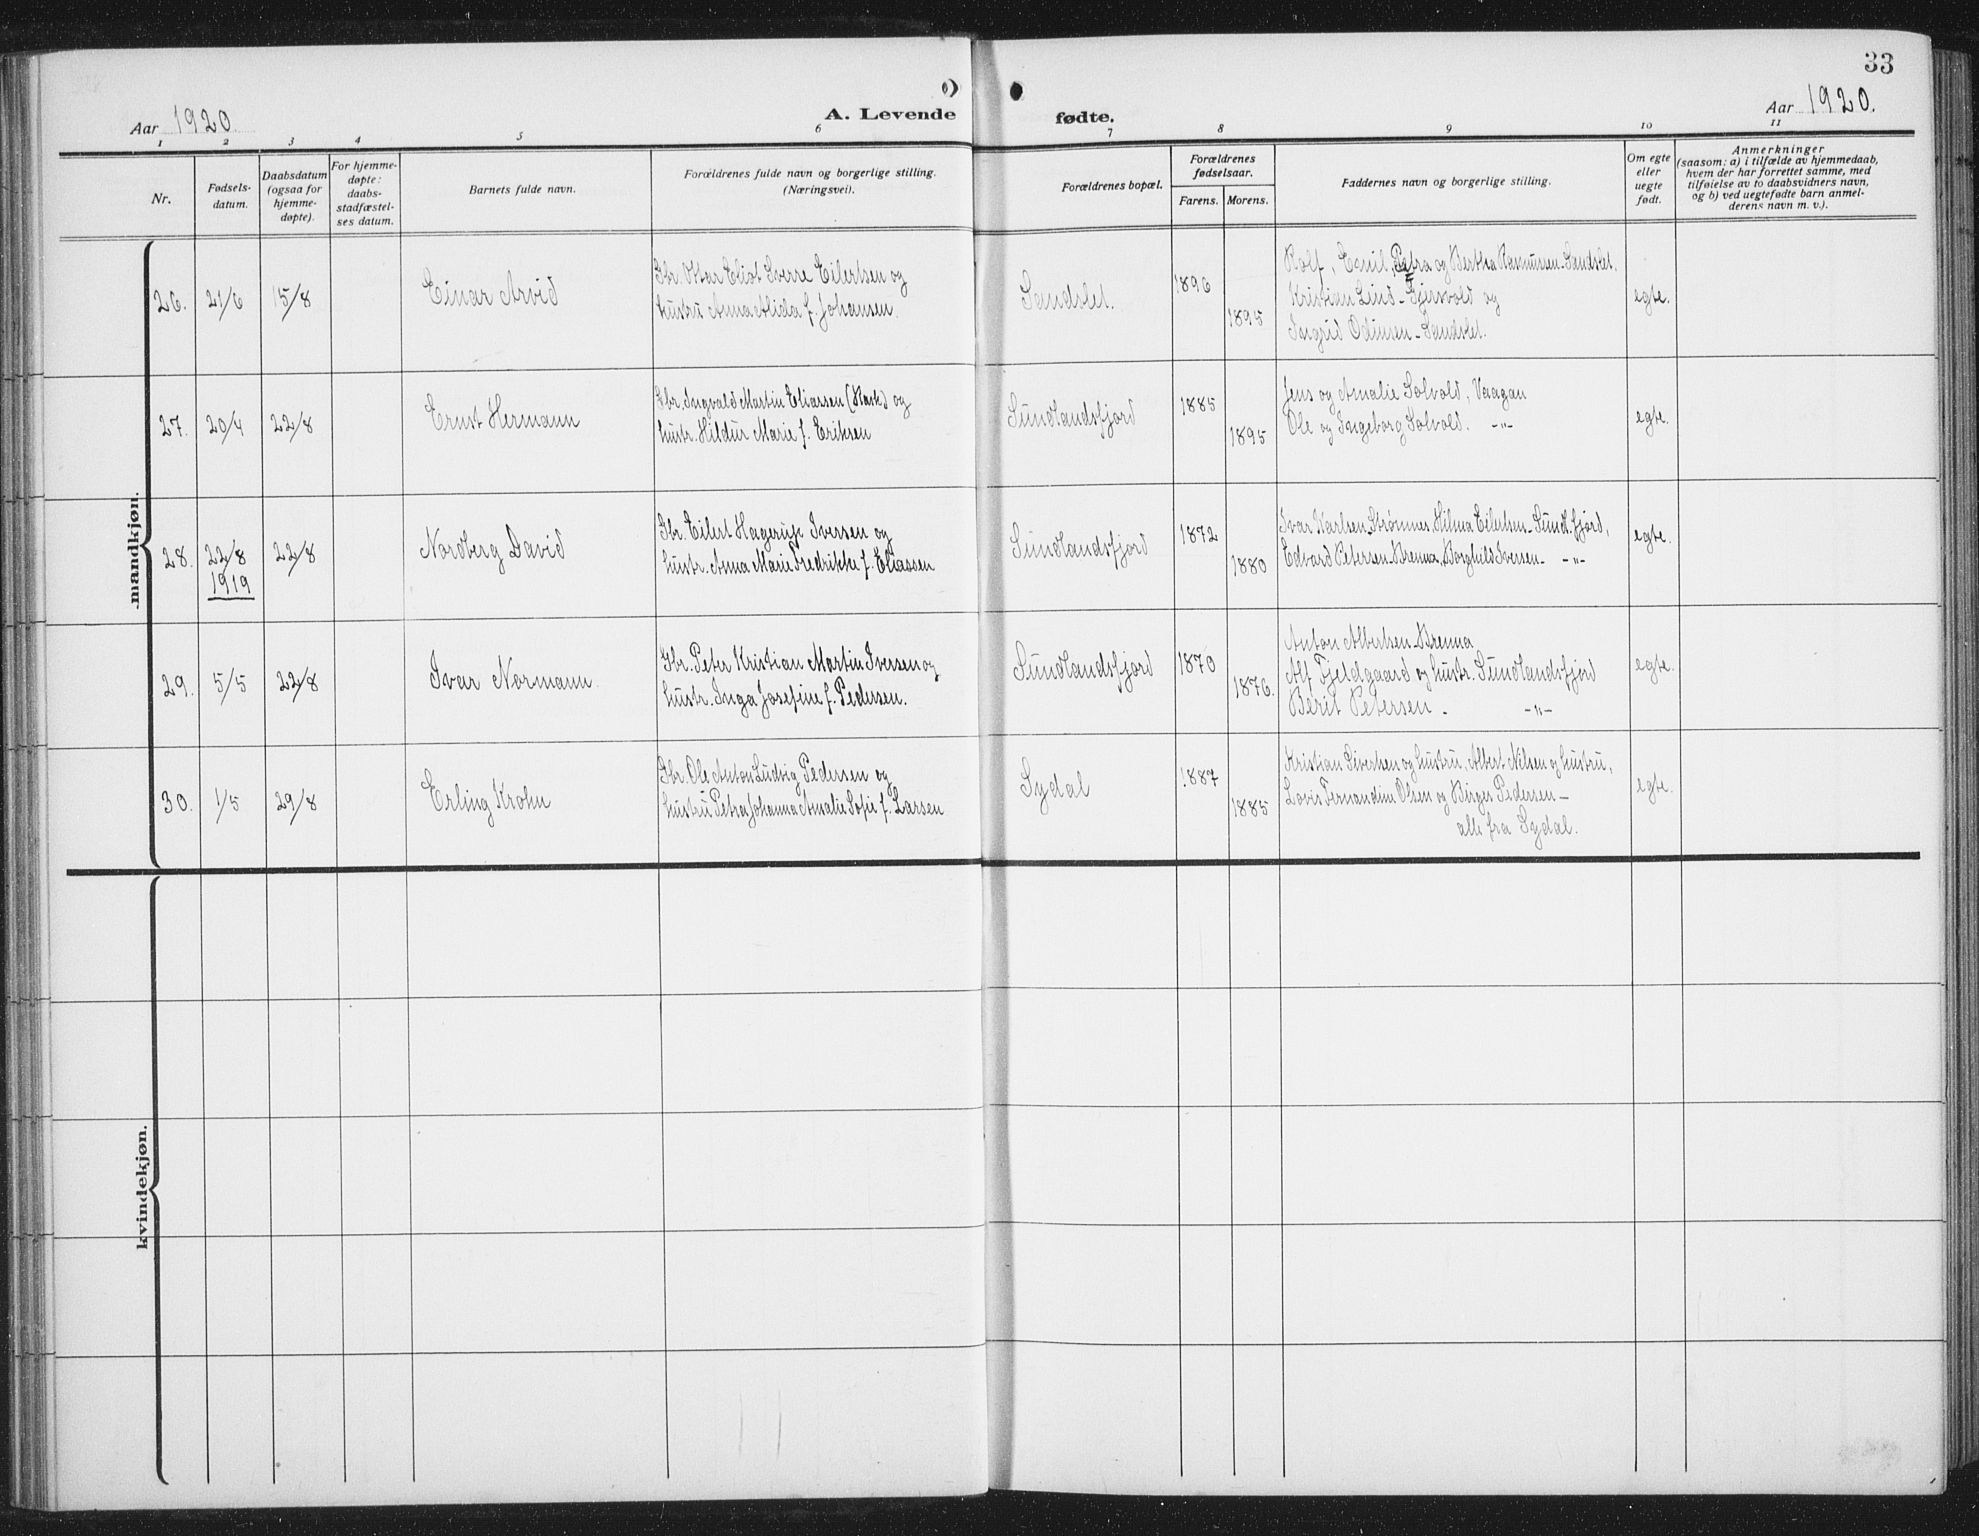 33
Aar 1920
A. Levende fødte.
Aar 1920.
1 2 3 4 5 6 7 8 9 10 11
Nr.
Fødsels-
datum.
Daabsdatum
(ogsaa for
hjemme-
døpte).
For hjemme-
døpte:
daabs-
stadfæstel-
ses datum.
Barnets fulde navn.
Forældrenes fulde navn og borgerlige stilling.
(Næringsvei).
Forældrenes bopæl.
Forældrenes
fødselsaar.
Farens. Morens.
Faddernes navn og borgerlige stilling.
Om egte
eller
uegte
født.
Anmerkninger
(saasom: a) i tilfælde av hjemmedaab,
hvem der har forrettet samme, med
tilføielse av to daabsvidners navn,
og b) ved uegtefødte barn anmel-
derens navn m. v.).
mandkjøn.
26. 21/6 15/8
Einar Arvid
Gbr. Ottar Eliot Sverre Eilertsen og
hustru Anna Alida f. Johansen.
Sandslet.
1896
1895
Rolf, Emil, Petra og Bertha Rasmussen-Sandslet,
Kristian Lind- og
Ingrid Odinsen-Sandslet.
egte.
27. 20/4 22/8
Ernst Hermann
Gbr. Ingvald Martin Eliassen (Mark) og
hustr. Hildur Marie f. Eriksen
Sundlandsfjord
1885
1895
Jens og Amalie Solvold, Vaagan
Ole og Ingeborg Solvold. -"-
egte.
28. 22/8 22/8
1919
Nordberg David
Gbr. Eilert Hagerup Iversen og
hustr. Anna Marie Fredrikke f. Eliassen
Sundlandsfjord
1872
1880
Ivar Karlsen-Strømnes, Hilma Eilertsen-Sundl.fjord,
Edvard Petersen-Brenna, Borghild Iversen- -"-
egte.
29. 5/5 22/8
Ivar Normann.
Gbr. Peter Kristian Martin Iversen og
hustr. Inga Josefine f. Pedersen.
Sundlandsfjord
1870
1876.
Anton Albertsen-Brenna
Alf Fjeldgaard og hustr. Sundlandsfjord
Berit Petersen- -"-
egte.
30. 1/5 29/8
Erling Krohn
Gbr. Ole Anton Ludvig Pedersen og
hustru Petra Johanna Amalie Sofie f. Larsen
Sydal
1887
1885
Kristian Sivertsen og hustru, Albert Nilsen og hustru,
Lovis Fernandine Olsen og Birger Pedersen-
alle fra Sydal.
egte.
kvindekjøn.